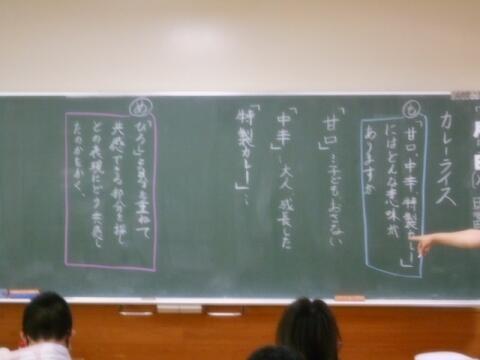 カレーライス
も
「甘口・中辛・特製カレー」
にはどんな意味が
ありますか
「甘口」…子ども、おさない
「中辛」…大人、成長した
「特製カレー」…
め
「ひろし」と自分を重ねて
共感できる部分を探し
どの表現にどう共感し
たのかをかく。